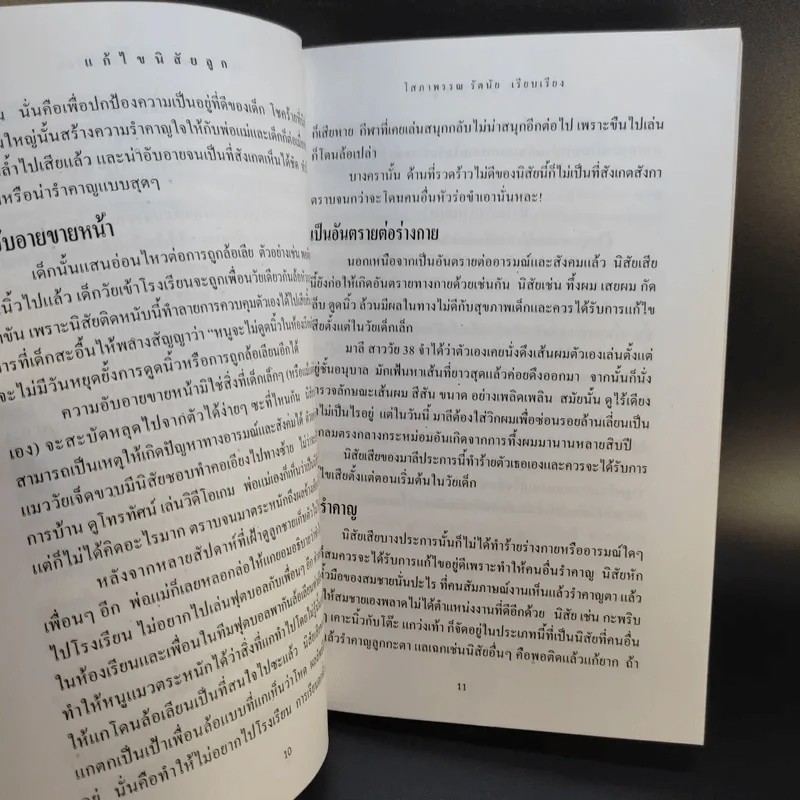 แก้ไขนิสัยลูก
นั่นคือเพื่อปกป้องความเป็นอยู่ที่ดีของเด็ก
นใหญ่นั้นสร้างความรำคาญใจให้กับพ่อแม่และเด็กก็ต่อเมื่อ
ล้ำไปเสียแล้ว และน่าอับอายจนเป็นที่สังเกตเห็นได้ชัด
หรือน่ารำคาญแบบสุดๆ
ับอายขายหน้า
เด็กนั้นแสนอ่อนไหวต่อการถูกล้อเลีย ตัวอย่างเช่น
นิ้วไปแล้ว เด็กวัยเข้าโรงเรียนจะถูกเพื่อนวัยเดียวกันล้อ
ขัน เพราะนิสัยติดหนับนี้ทำลายการควบคุมตัวเองได้ไปเสีย
การที่เด็กสะอื้นให้พลางสัญญาว่า "หนูจะไม่ดูดนิ้วในห้อง
จะไม่มีวันหยุดยั้งการดูดนิ้วหรือการถูกล้อเลียนอีกได้
ความอับอายขายหน้ามิใช่สิ่งที่เด็กเล็กๆ (หรือแม้
เอง) จะสะบัดหลุดไปจากตัวได้ง่ายๆ ซะที่ไหนกัน
สามารถเป็นเหตุให้เกิดปัญหาทางอารมณ์และสังคมได้
แมววัยเจ็ดขวบมีนิสัยชอบทำคอเอียงไปทางซ้าย
การบ้าน ดูโทรทัศน์ เล่นวิดีโอเกม พ่อแม่เองก็เห็นว่า
แต่ก็ไม่ได้คิดอะไรมาก ตราบจนมาตระหนักถึงผลข้างเคียง
หลังจากหลายสัปดาห์ที่เฝ้าดูลูกชายเก็บตัว
เพื่อนๆ อีก พ่อแม่ก็เลยหลอกล่อให้แกยอมอธิบายว่า
ไปโรงเรียน ไม่อยากไปเล่นฟุตบอลกับเพื่อนๆ อีก
ในห้องเรียนและเพื่อนในทีมฟุตบอลพากันล้อเลียน
ทำให้หนูแมวตระหนักได้ว่าสิ่งที่แกทำไปโดยไม่
ให้แกโดนล้อเลียนเป็นที่สนใจไปซะแล้ว
แกตกเป็นเป้าเพื่อนล้อแบบที่แกเห็นว่าโหด
อยู่ นั่นคือทำให้ไม่อยากไปโรงเรียน การเรียน
10
โสภาพรรณ รัตนัย เรียบเรียง
ก็เสียหาย กีฬาที่เคยเล่นสนุกกลับไม่น่าสนุกอีกต่อไป เพราะขืนไปเล่น
ก็โดนล้อเปล่า
บางครานั้น ด้านที่รวดร้าวไม่ดีของนิสัยนี้ก็ไม่เป็นที่สังเกตสังกา
ตราบจนกว่าจะโดนคนอื่นหัวร่อขำเอานั่นหละ!
เป็นอันตรายต่อร่างกาย
นอกเหนือจากเป็นอันตรายต่ออารมณ์และสังคมแล้ว นิสัยเสีย
นี้ยังก่อให้เกิดอันตรายทางกายด้วยเช่นกัน นิสัยเช่น ทึ้งผม เสยผม กัด
เล็บ ดูดนิ้ว ล้วนมีผลในทางไม่ดีกับสุขภาพเด็กและควรได้รับการแก้ไข
เสียตั้งแต่ในวัยเด็กเล็ก
มาลี สาววัย 38 จำได้ว่าตัวเองเคยนั่งดึงเส้นผมตัวเองเล่นตั้งแต่
อยู่ชั้นอนุบาล มักเฟ้นหาเส้นที่ยาวสุดแล้วค่อยดึงออกมา จากนั้นก็นั่ง
ตรวจลักษณะเส้นผม สีสัน ขนาด อย่างเพลิดเพลิน สมัยนั้น ดูไร้เดียง
ไม่เป็นไรอยู่ แต่ในวันนี้ มาลีต้องใส่วิกผมเพื่อซ่อนรอยล้านเลี่ยนเป็น
กลมตรงกลางกระหม่อมอันเกิดจากการทึ้งผมมานานหลายสิบปี
นิสัยเสียของมาลีประการนี้ทำร้ายตัวเธอเองและควรจะได้รับการ
ไขเสียตั้งแต่ตอนเริ่มต้นในวัยเด็ก
รำคาญ
นิสัยเสียบางประการนั้นก็ไม่ได้ทำร้ายร่างกายหรืออารมณ์ใดๆ
ที่สมควรจะได้รับการแก้ไขอยู่ดีเพราะทำให้คนอื่นรำคาญ นิสัยหัก
นิ้วมือของสมชายนั่นปะไร ที่คนสัมภาษณ์งานเห็นแล้วรำคาญตา แล้ว
ให้สมชายเองพลาดไม่ได้ตำแหน่งงานที่ดีอีกด้วย นิสัย เช่น กะพริบ
เคาะนิ้วกับโต๊ะ แกว่งเท้า ก็จัดอยู่ในประเภทนี้ที่เป็นนิสัยที่คนอื่น
แล้วรำคาญลูกกะตา และเฉกเช่นนิสัยอื่นๆ คือพอติดแล้วแก้ยาก ถ้า
11